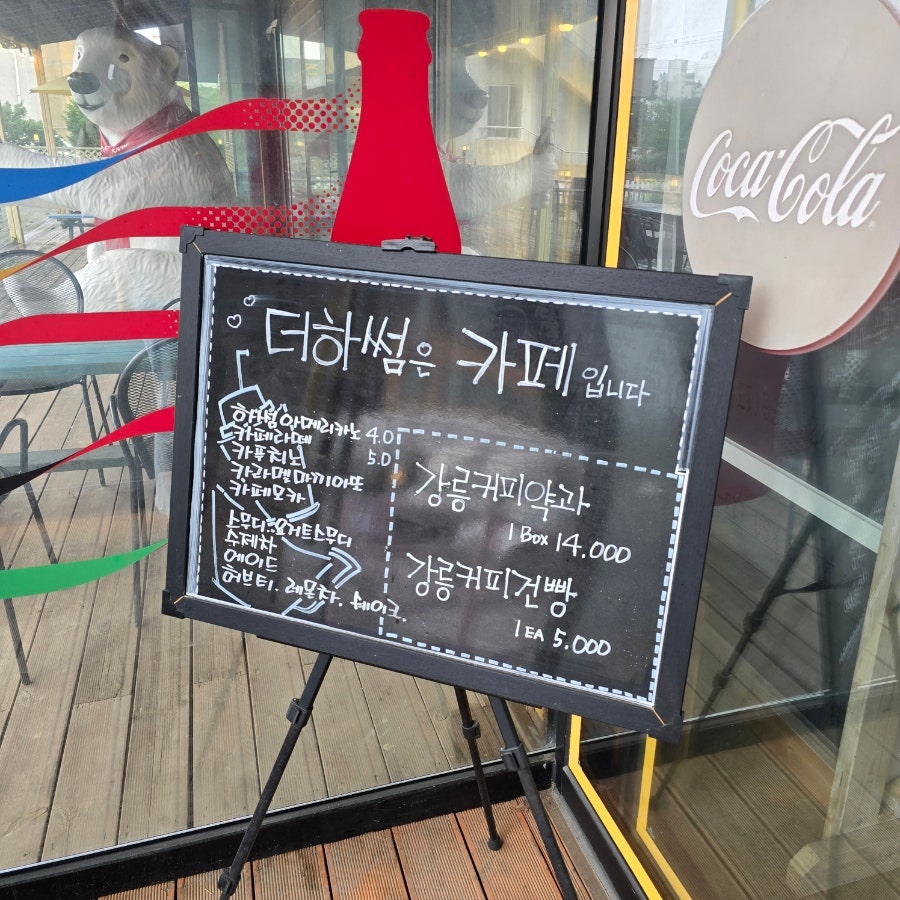 더하썸은 카페입니다
핫썸아메리카노 4.0
카페라떼 5.0
카푸치노
카라멜마끼아또
카페모카
스무디..요거트스무디
수제차
에이드
허브티. 레몬차. 쉐이크.
강릉커피약과
1 Box 14.000
강릉커피건빵
1 EA 5.000
Coca-Cola